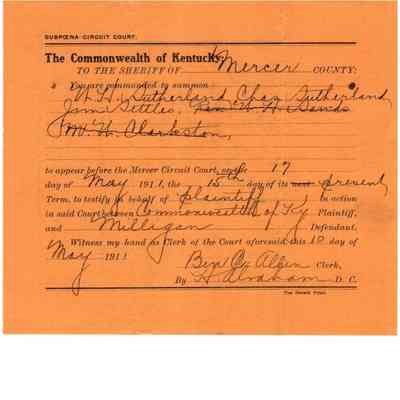 SUBPOENA-CIRCUIT COURT.
The Commonwealth of Kentucky:
TO THE SHERIFF OF Mercer COUNTY:
You are commanded to summon
W. H. Sutherland, Chas Sutherland,
Settles, W. H. Sands
Clarkston,
to appear before the Mercer Circuit Court, on the 17
day of May 1911, the 15th day of its next present
Term, to testify in behalf of plaintiff, in action
in said Court between Commonwealth of Ky Plaintiff,
and Milligan Defendant.
Witness my hand as Clerk of the Court aforesaid this 10 day of
May 1911
Ben C. Allin Clerk,
By D. C.